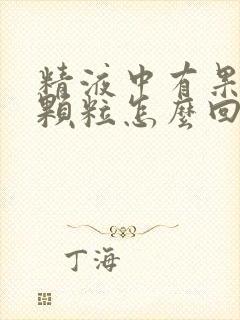 精液中有果
顆粒怎麼回
丁海